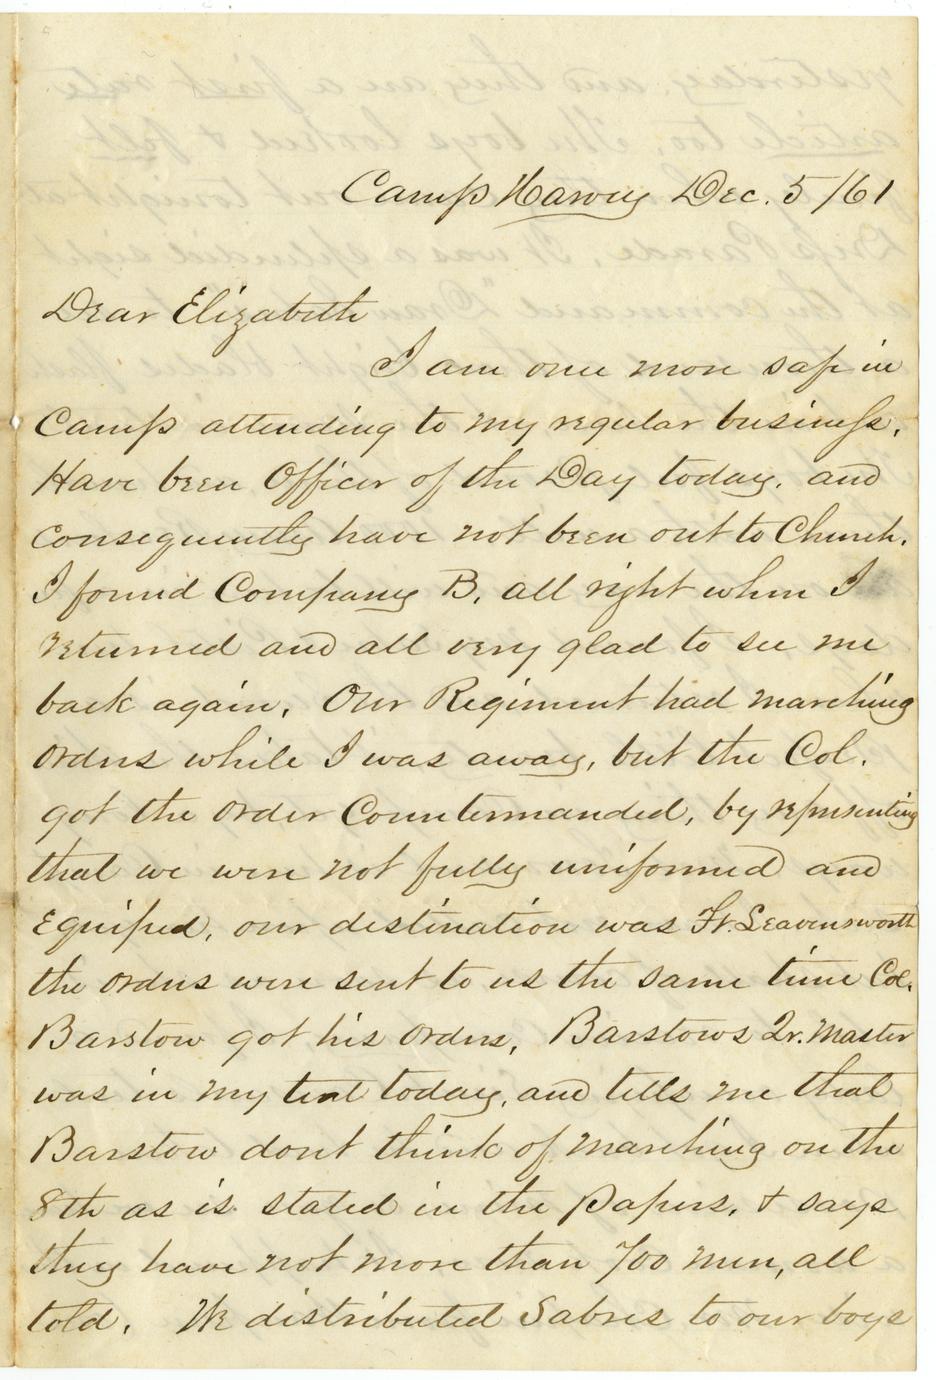 Camp Harvey Dec. 5/61
Dear Elizabeth
I am once more safe in
Camp attending to my regular business.
Have been Officer of the Day today, and
consequently have not been out to Church.
I found Company B. all right when I
returned and all very glad to see me
back again. Our Regiment had marching
orders while I was away, but the Col.
got the order Countermanded, by representing
that we were not fully uniformed and
Equiped, our destination was Ft. Leavensworth
the orders were sent to us the same time Col.
Barstow got his orders. Barstows Qr. Master
was in my tent today, and tells me that
Barstow dont think of marching on the
8th as is stated in the Papers, & says
they have not more than 700 men, all
told. We distributed Sabres to our boys